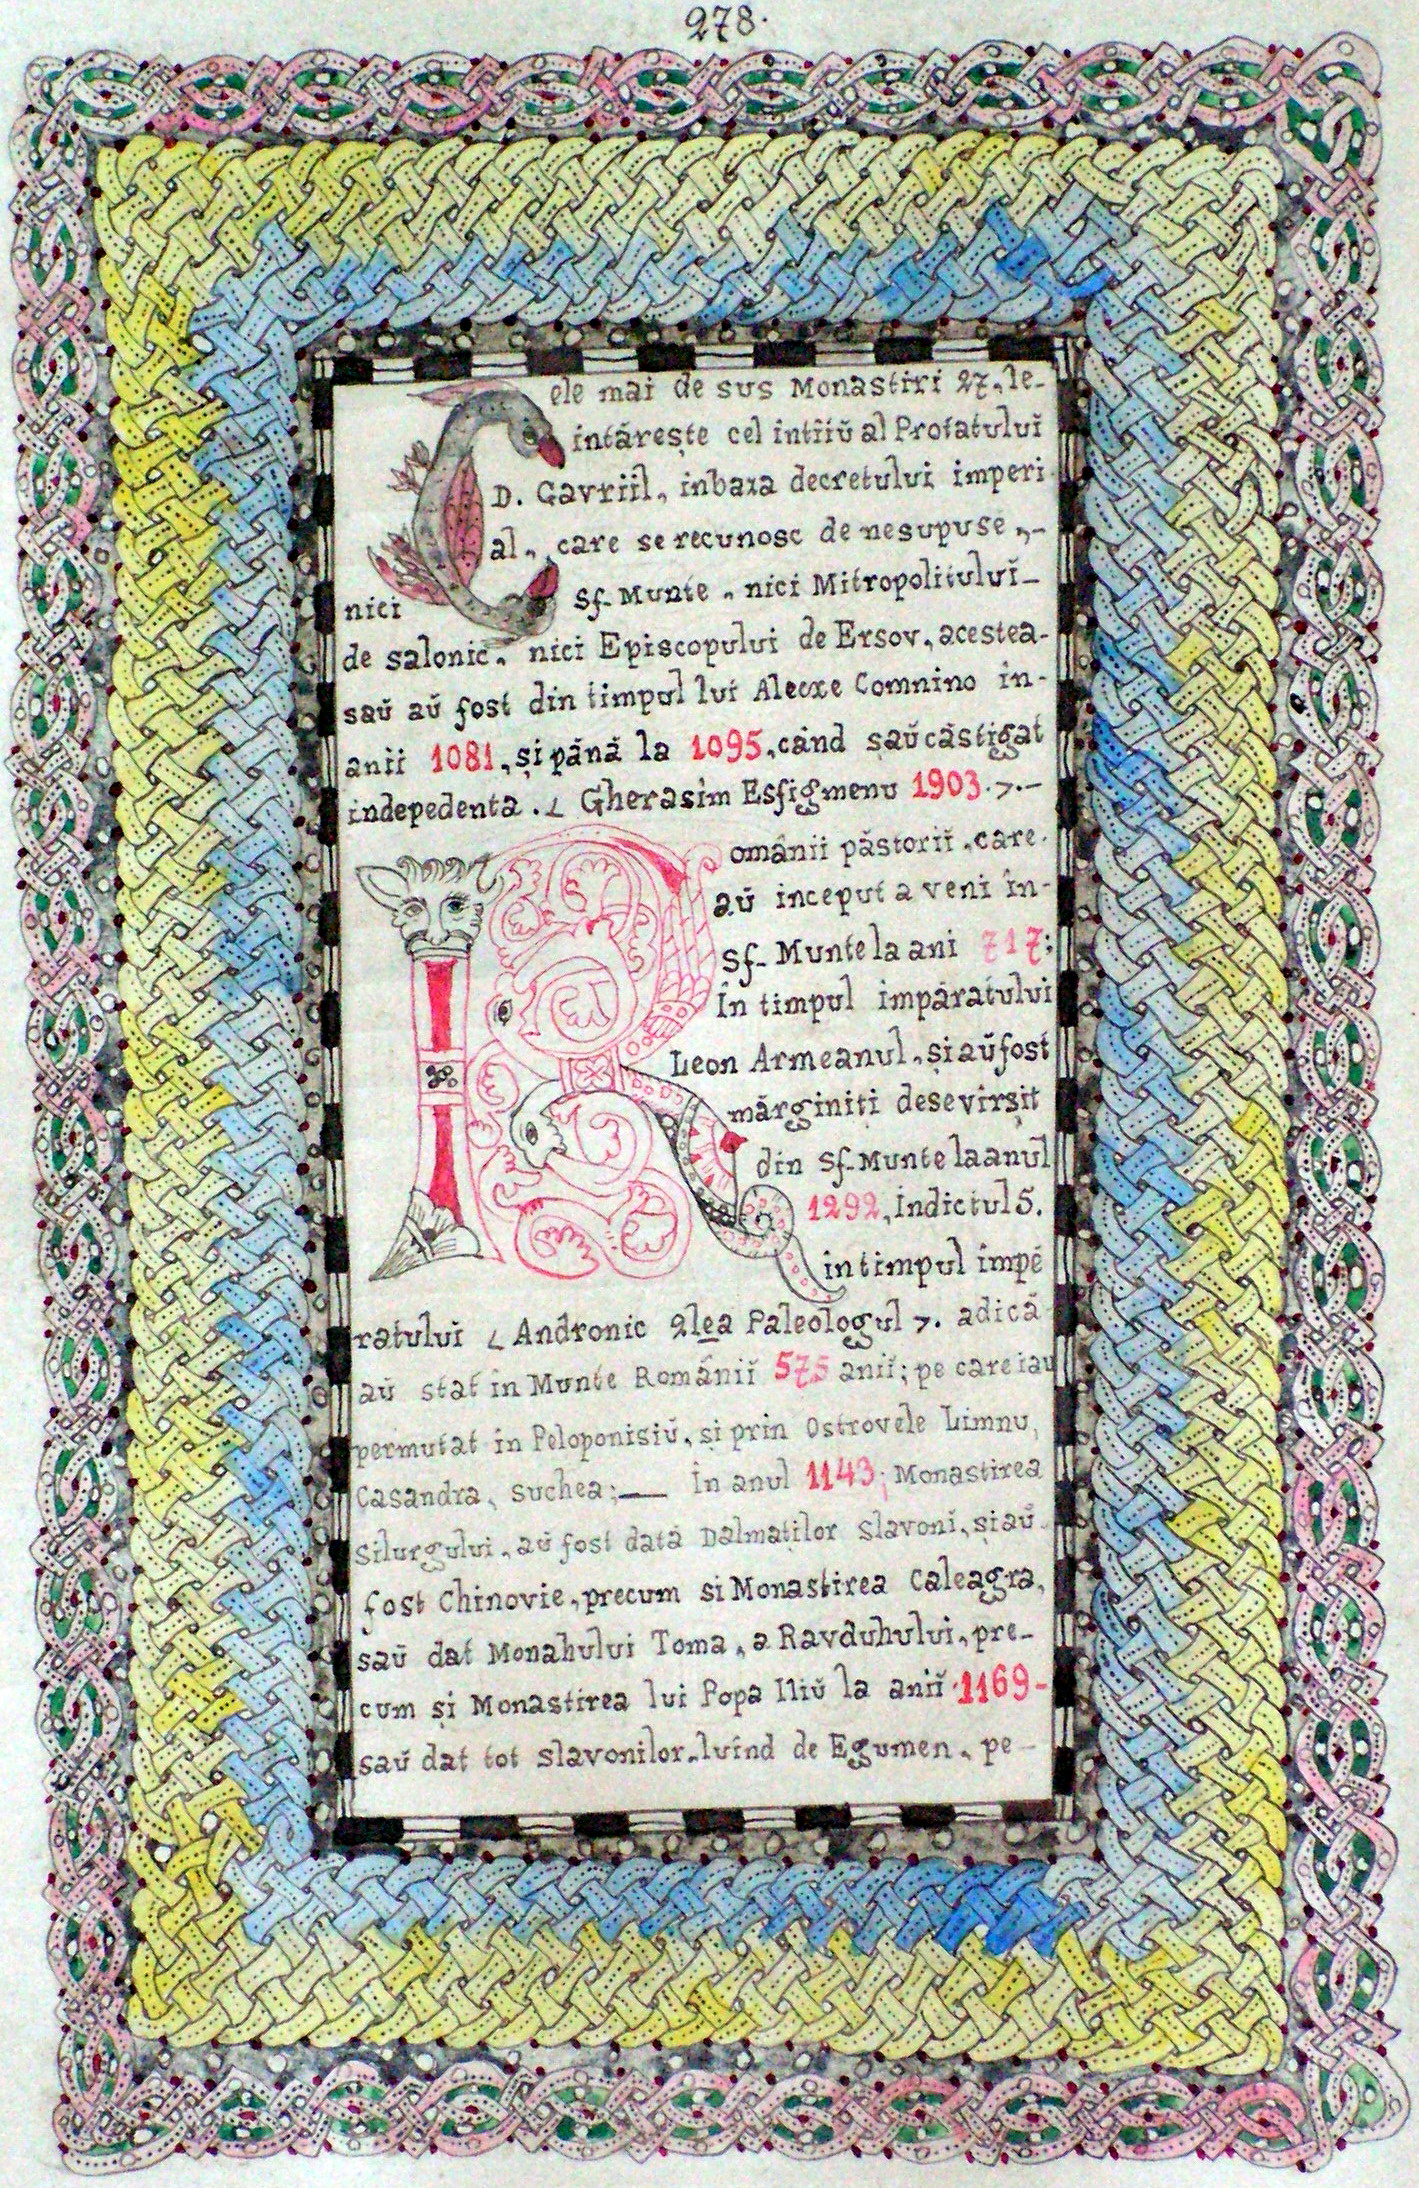 278.
Cele mai de sus Monastiri 27, le-
intărește cel intîiŭ al Protatuluĭ
D. Gavriil, inbaza decretuluĭ imperi
al, care se recunosc de nesupuse,-
nici Sf. Munte, nici Mitropolituluĭ-
de salonic, nici Episcopului de Ersov, acestea-
saŭ aŭ fost din timpul lui Alecxe Comnino în-
anii 1081, și până la 1095, când saŭ câstigat
indepedenta. < Gherasim Esfigmenu 1903. >.-
Românii păstoriĭ, care.
aŭ inceput a veni în-
Sf. Munte la ani 717;
În timpul impăratului
Leon Armeanul, și aŭ fost
mărginiți desevirșit
din Sf. Munte la anul
1292, Indictul 5.
in timpul impĕ
ratului < Andronic 2lea Paleologul >. adică
aŭ stat in Munte Româniĭ 575 aniĭ; pe care iau
permutat in Peloponisiŭ, și prin Ostrovele Limnu,
Casandra, suchea;— În anul 1143; Monastirea
Silurgului, aŭ fost dată Dalmaților slavoni, și aŭ
fost Chinovie, precum si Monastirea Caleagra,
saŭ dat Monahului Toma, a Ravduhului, pre-
cum și Monastirea lui Popa Iliŭ la aniĭ 1169-
saŭ dat tot slavonilor, luînd de Egumen, pe-